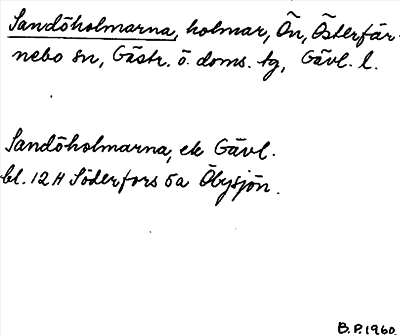 Sandöholmarna, holmar, Ön, Österfär-
nebo sn, Gästr. ö. doms. tg, Gävl. l.
Sandöholmarna, ek Gävl.
bl. 12 H Söderfors 5a Öbysjön.
B.P. 1960.